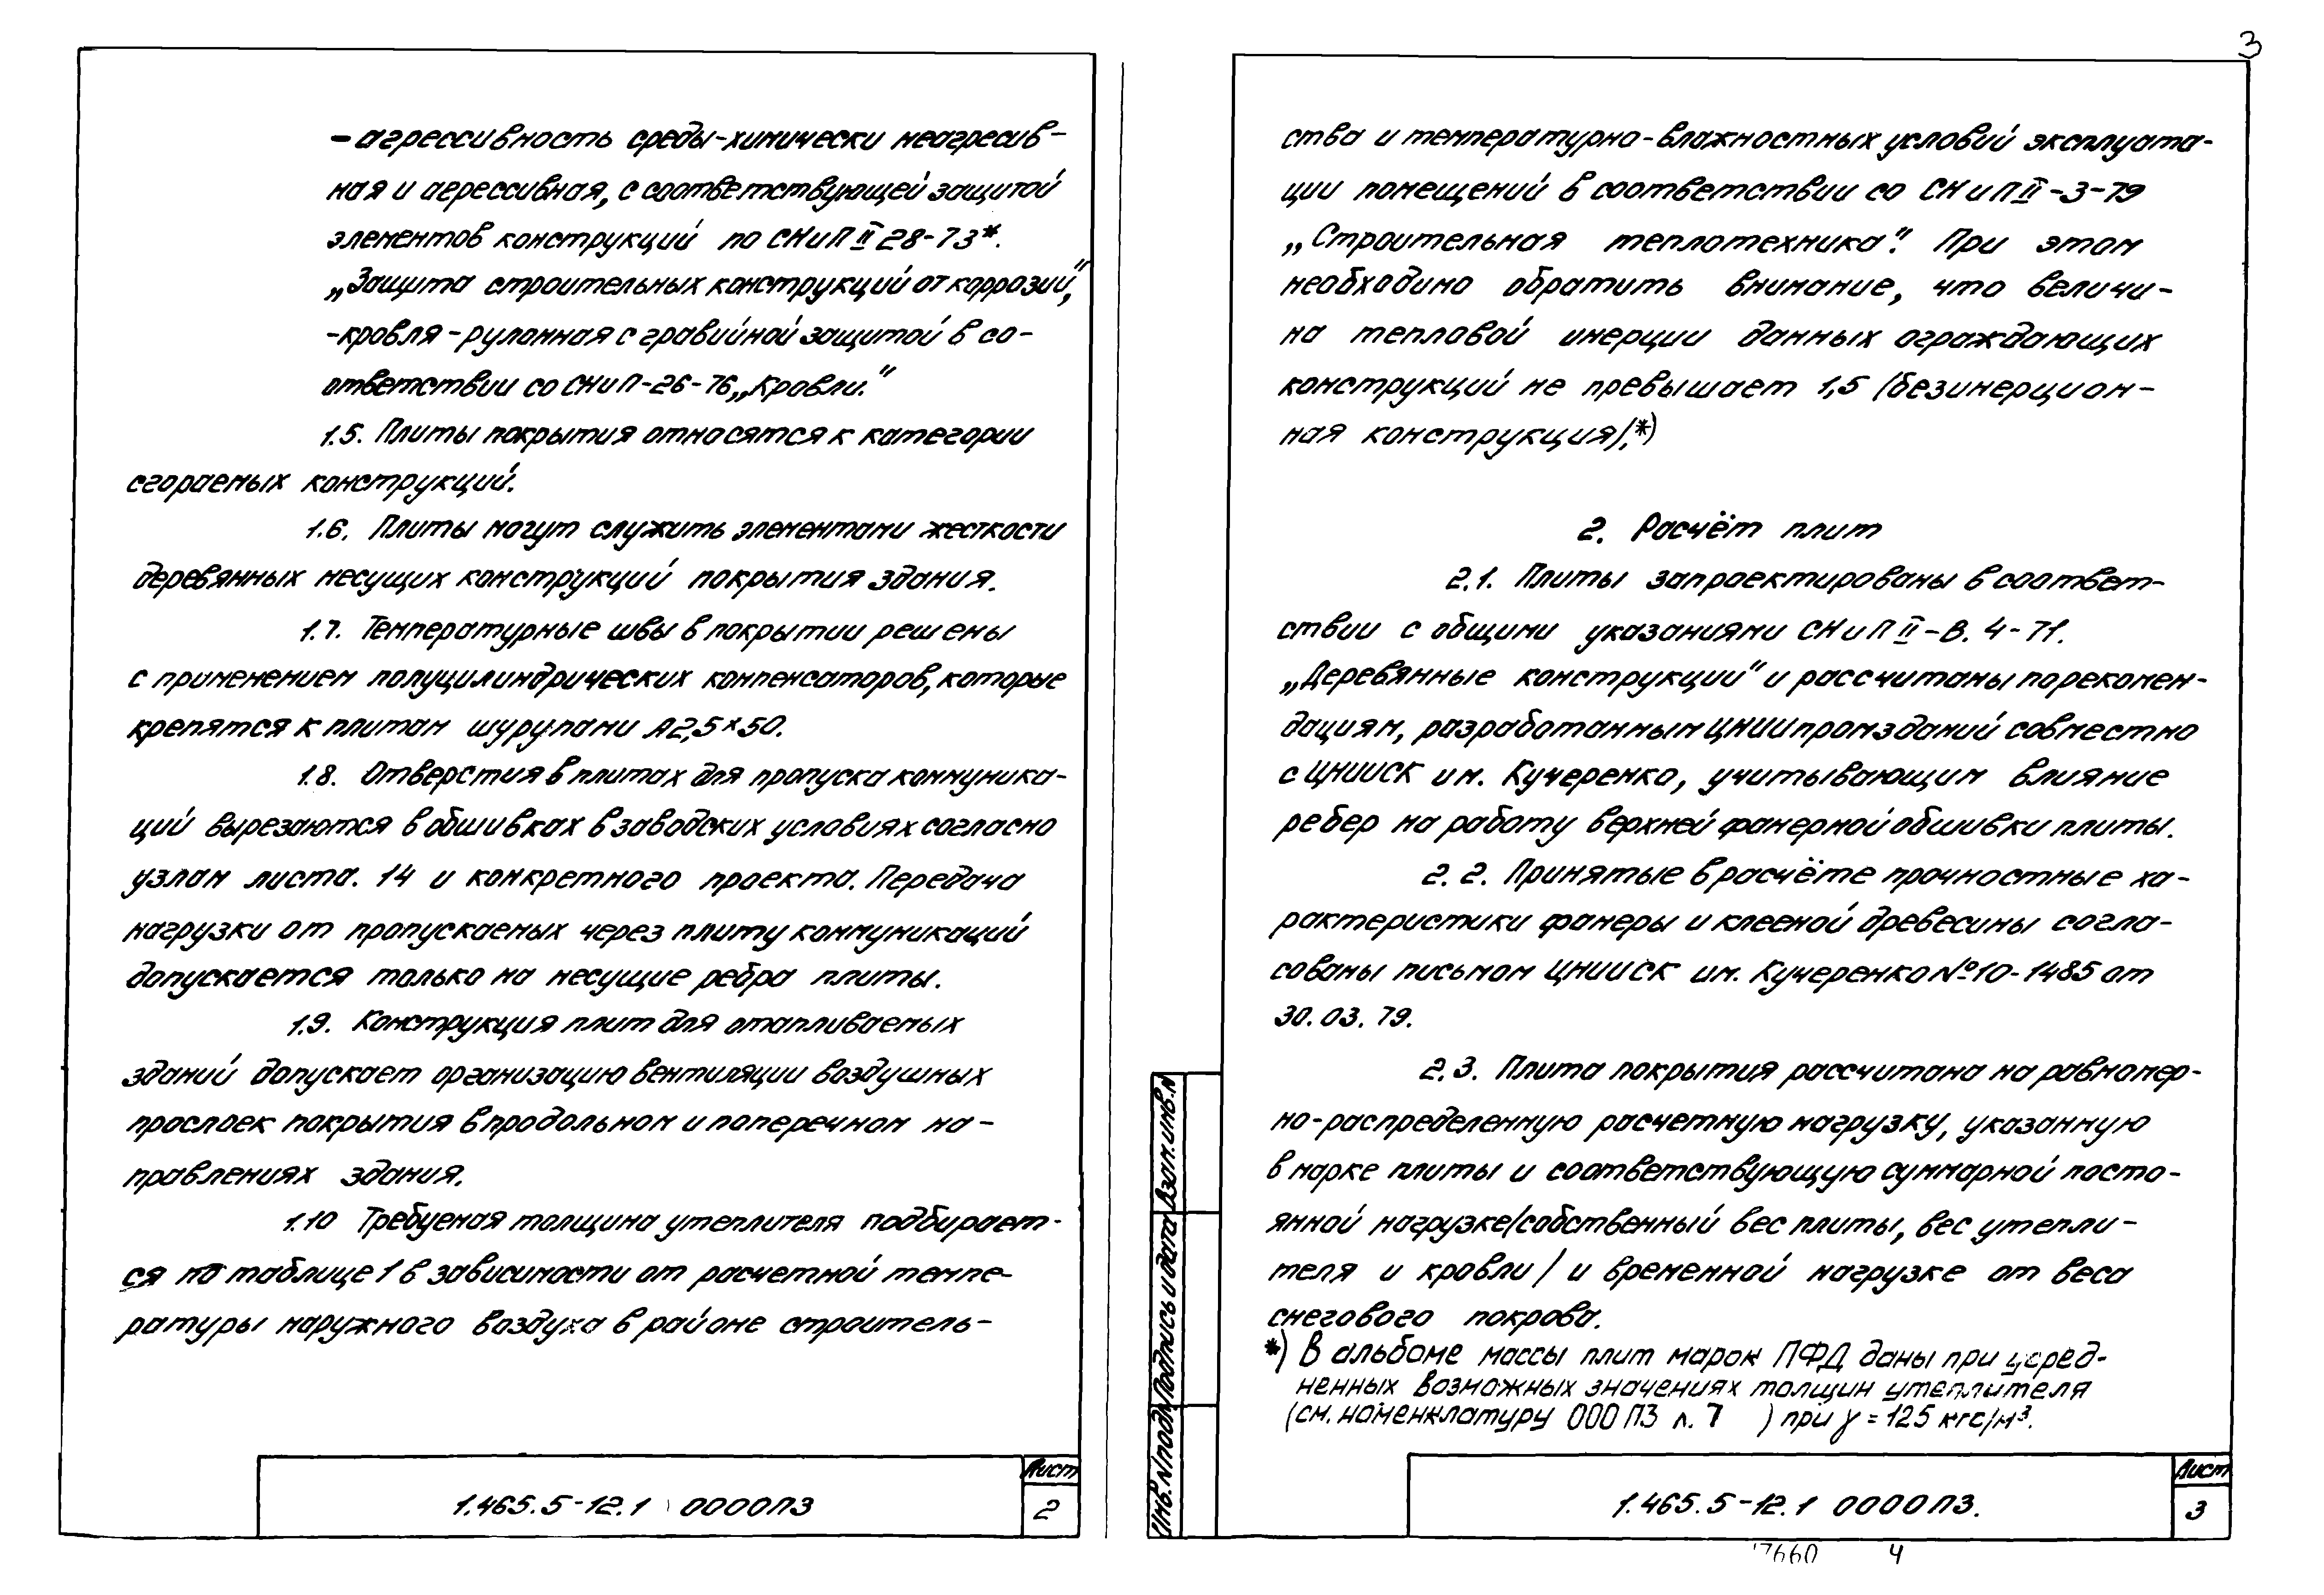 3
- агрессивность среды-химически неагресив-
ная и агрессивная, с соответствующей защитой
элементов конструкций по СНиП II 28-73*.
„Защита строительных конструкций от коррозий",
-кровля - рулонная с гравийной защитой в со-
ответствии со СНиП-26-76 „Кровли."
1.5. Плиты покрытия относятся к категории
сгораемых конструкций.
1.6. Плиты могут служить элементами жесткости
деревянных несущих конструкций покрытия здания.
1.7. Температурные швы в покрытии решены
с применением полуцилиндрических компенсаторов, которые
крепятся к плитам шурупами А2,5×50.
1.8. Отверстия в плитах для пропуска коммуника-
ций вырезаются в обшивках в заводских условиях согласно
узлам листа. 14 и конкретного проекта. Передача
нагрузки от пропускаемых через плиту коммуникаций
допускается только на несущие ребра плиты.
1.9. Конструкция плит для отапливаемых
зданий допускает организацию вентиляции воздушных
прослоек покрытия в продольном и поперечном на-
правлениях здания.
1.10 Требуемая толщина утеплителя подбирает-
ся по таблице 1 в зависимости от расчетной темпе-
ратуры наружного воздуха в районе строитель-
1.465.5-12.1 0000ПЗ
Лист
2
ства и температурно-влажностных условий эксплуата-
ции помещений в соответствии со СНиП II-3-79
„Строительная теплотехника". При этом
необходимо обратить внимание, что величи-
на тепловой инерции данных ограждающих
конструкций не превышает 1,5 /безинерцион-
ная конструкция/.*)
2. Расчёт плит
2.1. Плиты запроектированы в соответ-
ствии с общими указаниями СНиП II-В. 4-71.
„Деревянные конструкций" и рассчитаны по рекомен-
дациям, разработанным ЦНИИпромзданий совместно
с ЦНИИСК им. Кучеренко, учитывающим влияние
ребер на работу верхней фанерной обшивки плиты.
2.2. Принятые в расчёте прочностные ха-
рактеристики фанеры и клееной древесины согла-
сованы письмом ЦНИИСК им. Кучеренко №10-1485 от
30.03.79.
2.3. Плита покрытия рассчитана на равномер-
но-распределенную расчетную нагрузку, указанную
в марке плиты и соответствующую суммарной посто-
янной нагрузке/собственный вес плиты, вес утепли-
теля и кровли/ и временной нагрузке от веса
снегового покрова.
*) В альбоме массы плит марок ПФД даны при усред-
ненных возможных значениях толщин утеплителя
(см. номенклатуру 000 ПЗ л. 7 ) при γ = 125 кгс/м³.
Инв. N подл. Подпись и дата Взам. инв. N
1.465.5-12.1 0000ПЗ.
Лист
3
17660 4